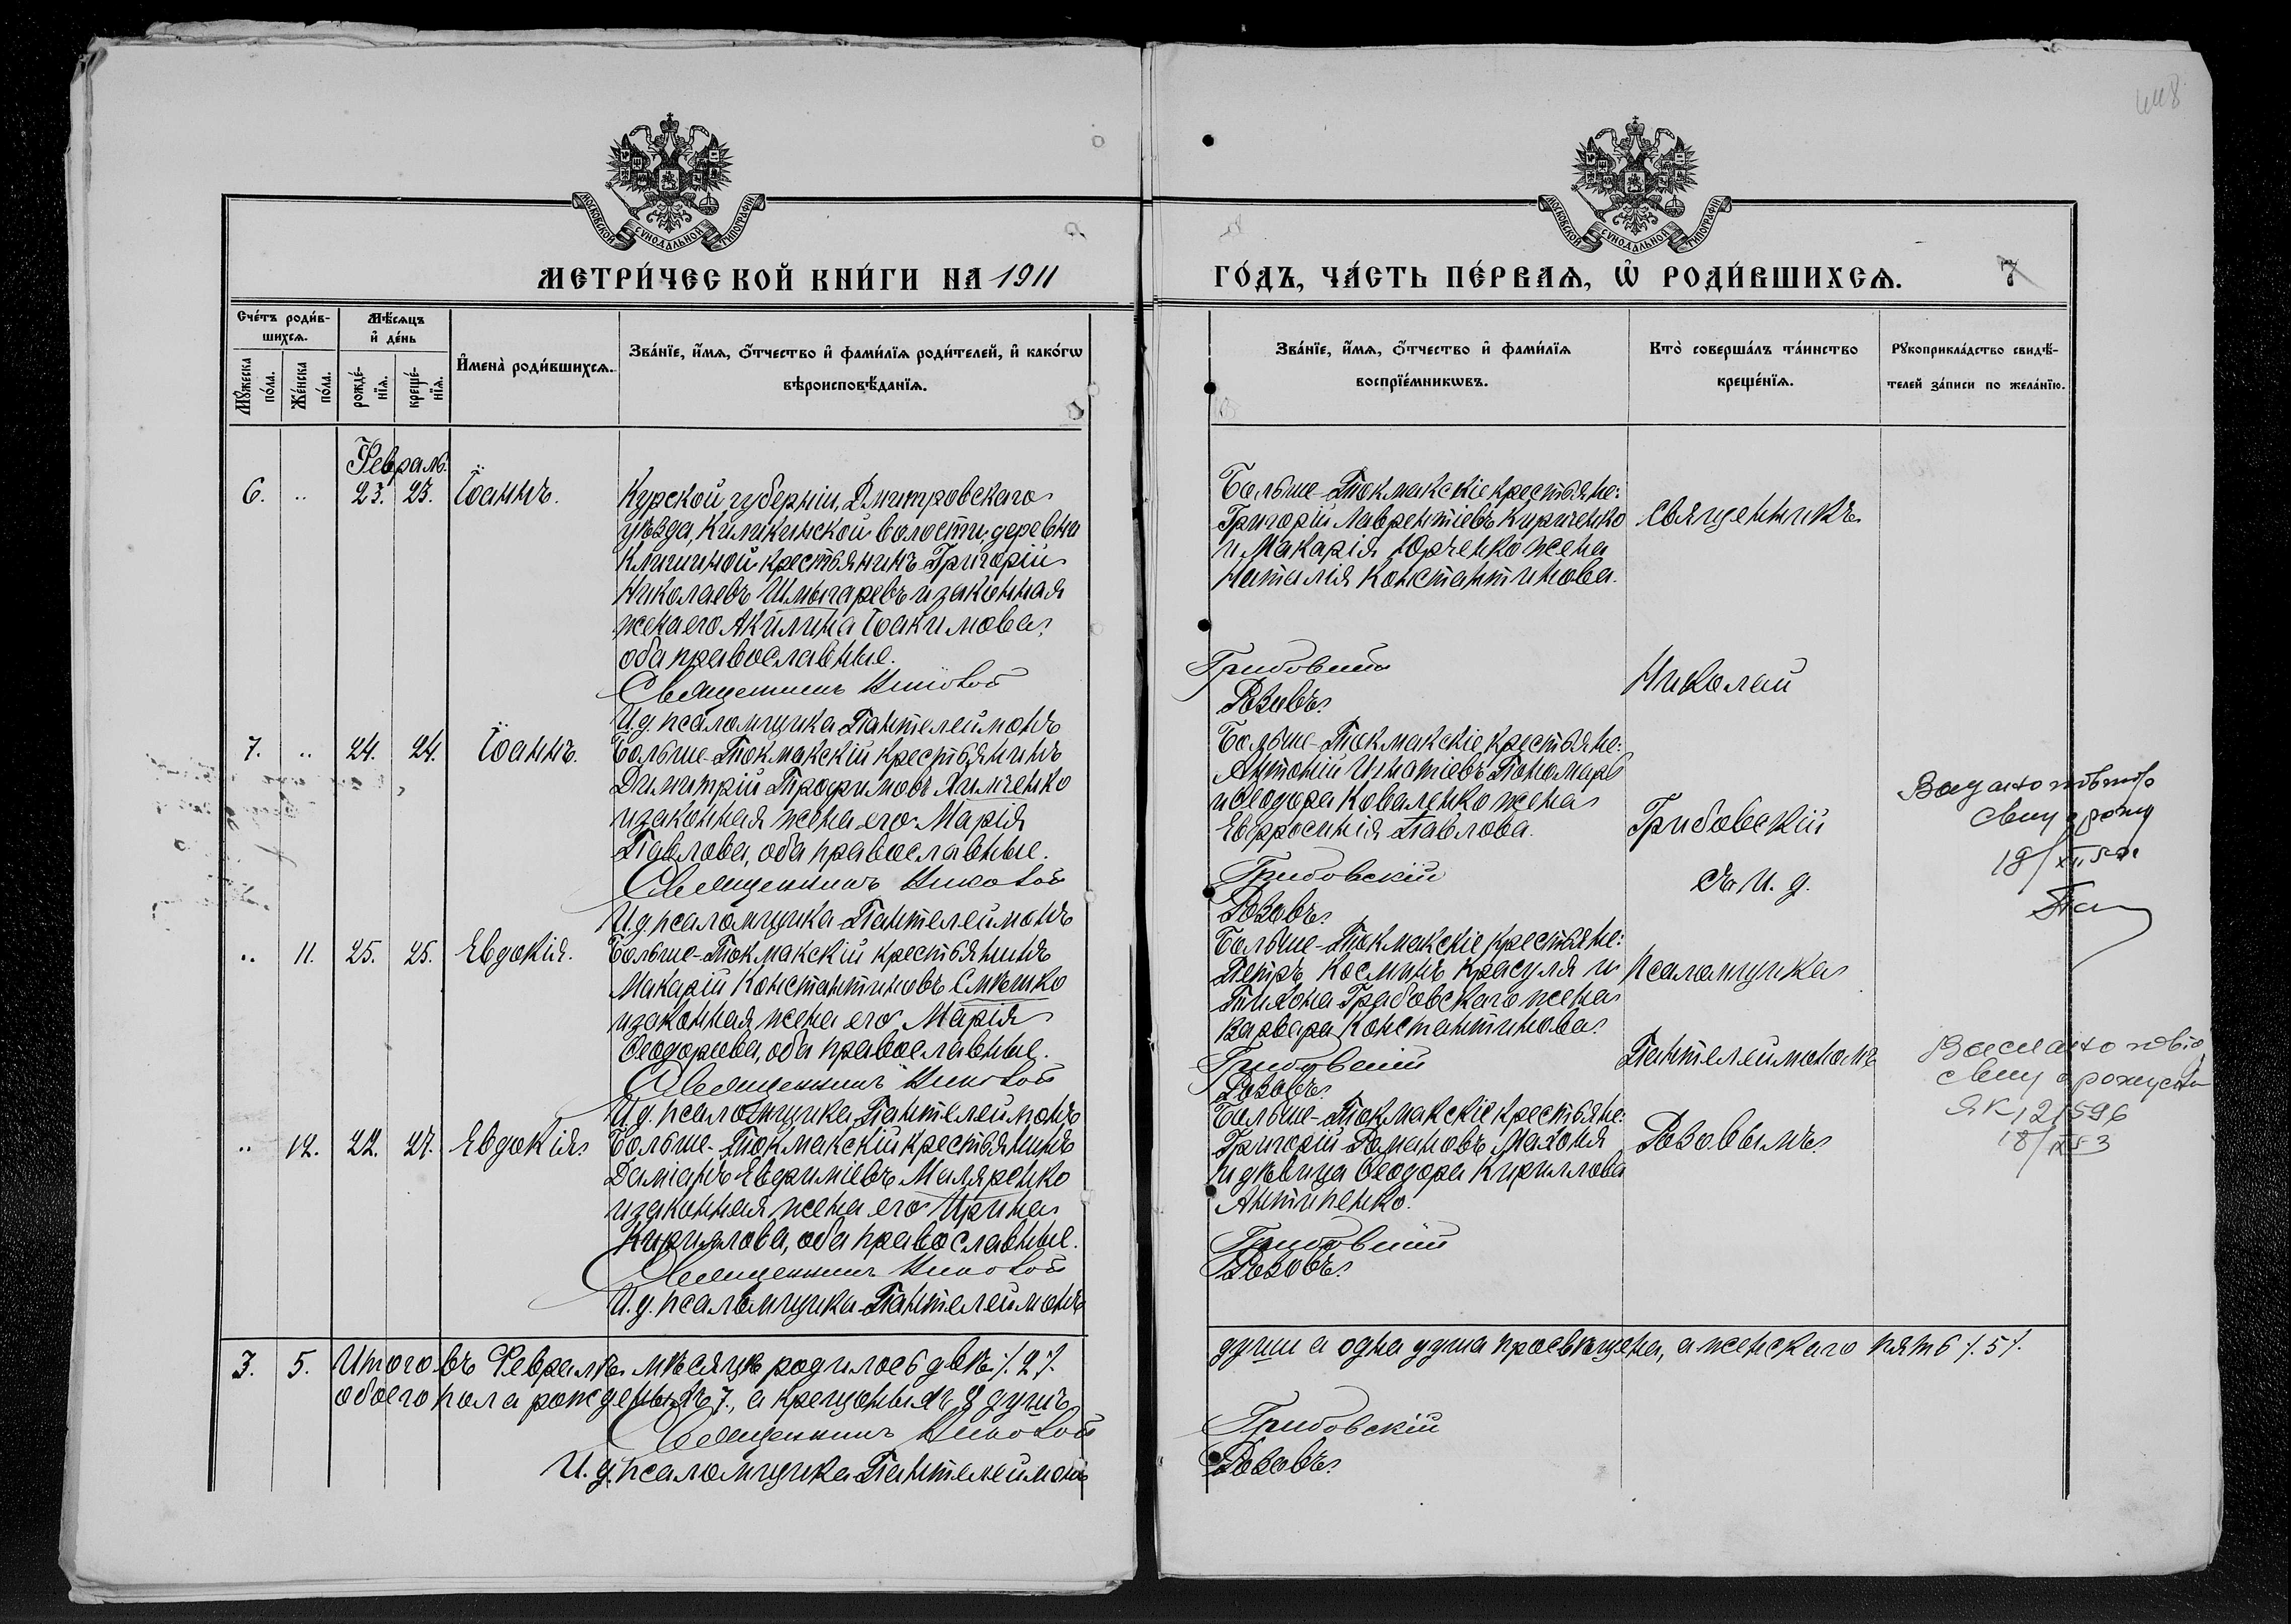 448
МОСКОВСКОЙ СѴНОДАЛЬНОЙ ТИПОГРАФІИ
МОСКОВСКОЙ СѴНОДАЛЬНОЙ ТИПОГРАФІИ
МЕТРИ́ЧЕСКОЙ КНИ́ГИ НА 1911
ГО́ДЪ, ЧА́СТЬ ПЕ́РВАѦ, Ѽ РОДИ́ВШИХСѦ. 7
Сче́тъ роди́в-
шихсѧ.
Мꙋ́жеска
по́ла.
Же́нска
по́ла.
Мѣ́сѧцъ
и҆ де́нь
рожде́-
нїѧ.
креще́-
нїѧ.
И҆мена̀ роди́вшихсѧ.
Зва́нїе, и҆́мѧ, ѻ҆́тчество и҆ фами́лїѧ роди́телей, и҆ како́гѡ
вѣроисповѣ́данїѧ.
Зва́нїе, и҆́мѧ, ѻ҆́тчество и҆ фами́лїѧ
воспрїе́мникѡвъ.
Кто̀ соверша́лъ та́инство
креще́нїѧ.
Рꙋкоприкла́дство свидѣ́-
телей за́писи по жела́нїю.
Февраль.
6. .. 23. 23. Іоаннъ.
Курской губерніи, Дмитровскаго
уѣзда, Киликинской волости, деревни
Клишиной крестьянинъ Григорій
Николаевъ Шмыгаревъ и законная
жена его Акилина Іоакимова,
оба православные.
Священникъ Николай
И.д. псаломщика Пантелеймонъ
Больше-Токмакскіе крестьяне:
Григорій Лаврентіевъ Кириченко
и Макарія Юрченко жена
Наталія Константинова.
Грибовскій
Розовъ.
Священникъ
Николай
7. .. 24. 24. Іоаннъ.
Больше-Токмакскій крестьянинъ
Димитрій Трофимовъ Химченко
и законная жена его Марія
Павлова, оба православные.
Священникъ Николай
И.д. псаломщика Пантелеймонъ
Больше-Токмакскіе крестьяне:
Антоній Игнатіевъ Пономарь
и Ѳеодора Коваленко жена
Евфросинія Павлова.
Грибовскій
Розовъ.
Грибовскій
съ И. д.
18/
.. 11. 25. 25. Евдокія.
Больше-Токмакскій крестьянинъ
Макарій Константиновъ Смѣшко
и законная жена его Марія
Ѳеодорова, оба православные.
Священникъ Николай
И.д. псаломщика Пантелеймонъ
Больше-Токмакскіе крестьяне:
Петръ Косминъ Красуля и
Тихона Грабовскаго жена
Варвара Константинова
Грибовскій
Розовъ.
псаломщика
Пантелеймономъ
.. 12. 22. 27. Евдокія
Больше-Токмакскій крестьянинъ
Даміанъ Евфиміевъ Маляренко
и законная жена его Ирина
Кириллова, оба православные.
Священникъ Николай
И.д. псаломщика Пантелеймонъ
Больше-Токмакскіе крестьяне:
Григорій Романовъ Махоня
и дѣвица Ѳеодора Кириллова
Антипенко.
Грибовскій
Розовъ.
Розовымъ.
3. 5. Итого въ Февралѣ мѣсяцѣ родилось двѣ /.2/.
души а одна душа просвѣщена, а женскаго пять /.5/.
обоего пола рожденныхъ 7., а крещоныхъ 8 душъ
Священникъ Николай
Грибовскій
И.д. псаломщика Пантелеймонъ
Розовъ.